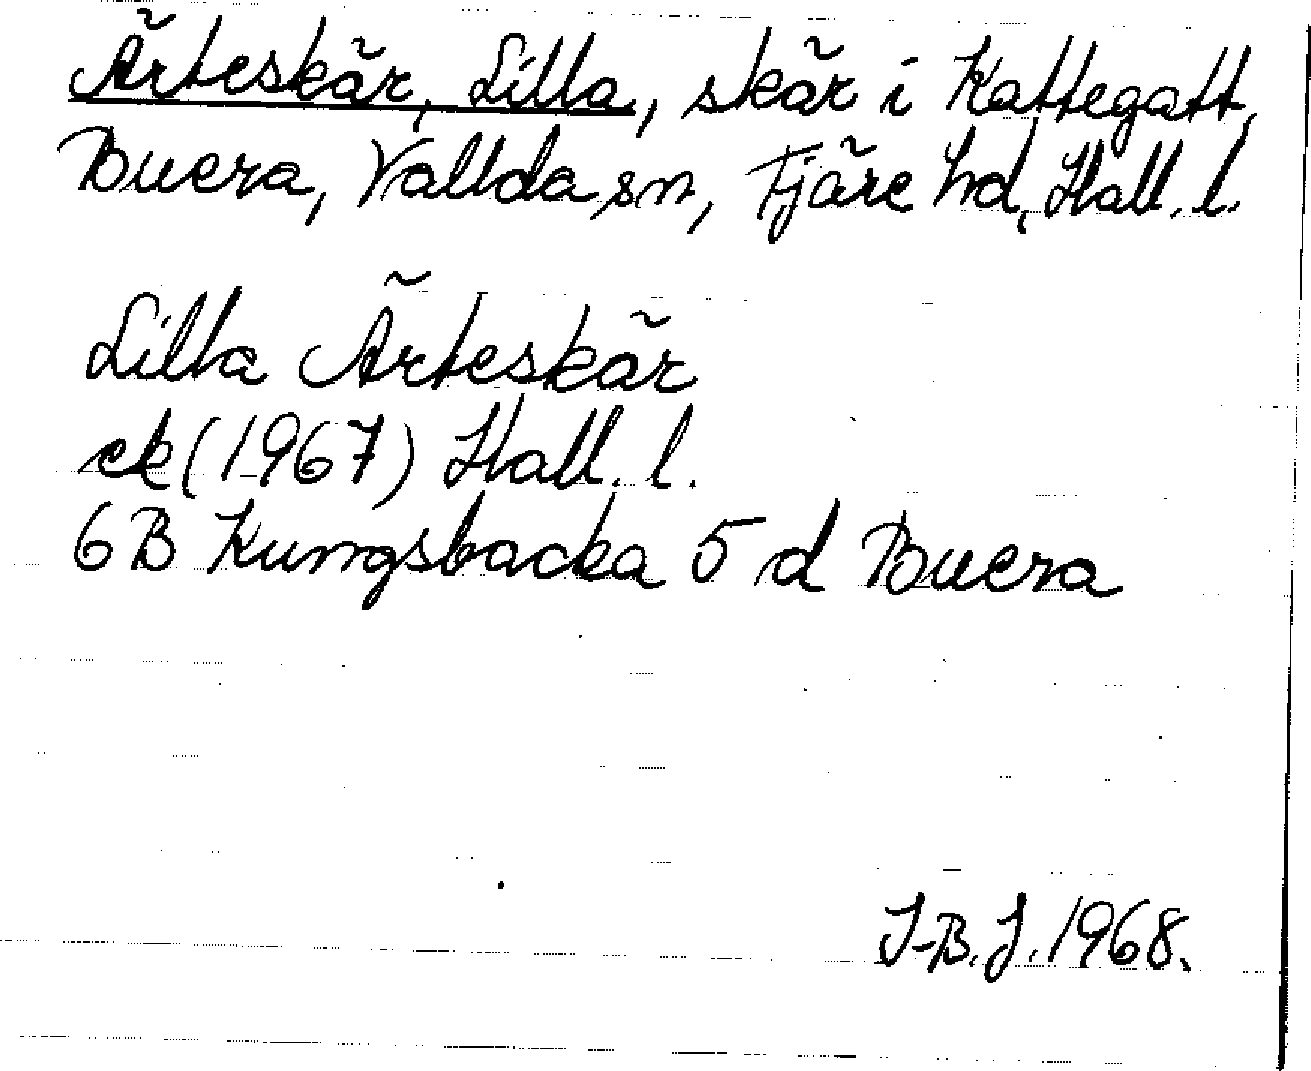 Ärteskär, Lilla, skär i Kattegatt,
Buera, Vallda sn, Fjäre hd, Hall. l.
Lilla Ärteskär
ek (1967) Hall. l.
6B Kungsbacka 5 d Buera
I-B. J. 1968.